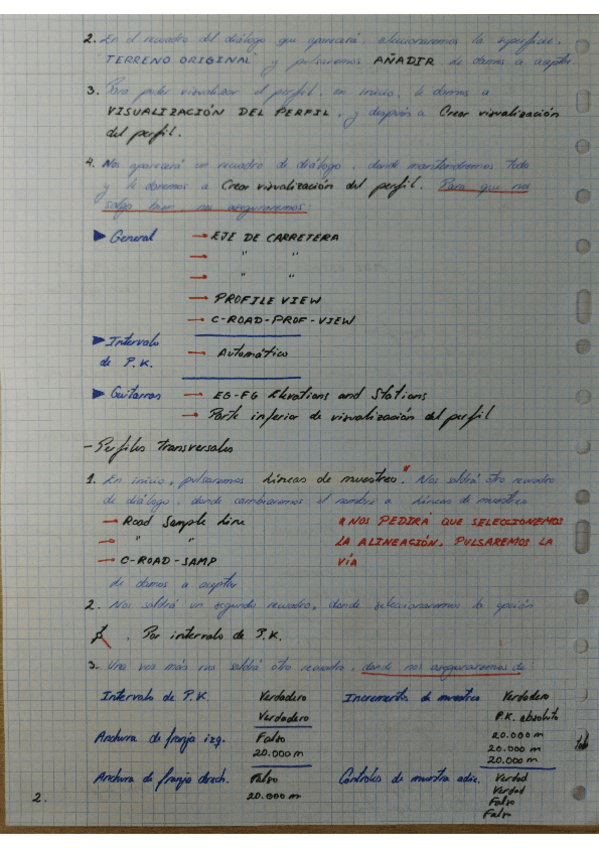 2. En el recuadro del diálogo que aparecerá, seleccionaremos la superficie
"TERRENO ORIGINAL" y pulsaremos AÑADIR le damos a aceptar
3. Para poder visualizar el perfil, en inicio, le damos a
VISUALIZACIÓN DEL PERFIL, y después a Crear visualización
del perfil.
4. Nos aparecerá un recuadro de diálogo, donde mantendremos todo
y le daremos a Crear visualización del perfil. Para que nos
salga bien nos aseguraremos:
General → EJE DE CARRETERA
→ " "
→ " "
→ PROFILE VIEW
→ C-ROAD-PROF-VIEW
Intervalo
de P.K. → Automático
Guitarras → EG-FG Elevations and Stations
→ Parte inferior de visualización del perfil
- Perfiles transversales
1. En inicio, pulsaremos Líneas de muestreo.* Nos saldrá otro recuadro
de diálogo, donde cambiaremos el nombre a Líneas de muestreo
→ Road Sample Line
→ " "
→ C-ROAD-SAMP
* NOS PEDIRÁ QUE SELECCIONEMOS
LA ALINEACIÓN, PULSAREMOS LA
VÍA
le damos a aceptar
2. Nos saldrá un segundo recuadro, donde seleccionaremos la opción
. Por intervalo de P.K.
3. Una vez más nos saldrá otro recuadro, donde nos aseguraremos de:
Intervalo de P.K. Verdadero
Verdadero
Anchura de franja izq. Falso
20.000 m
Anchura de franja drech. Falso
20.000 m
Incrementos de muestreo Verdadero
P.K. absoluto
20.000 m
20.000 m
20.000 m
Controles de muestra adic. Verdad
Verdad
Falso
Falso
2.